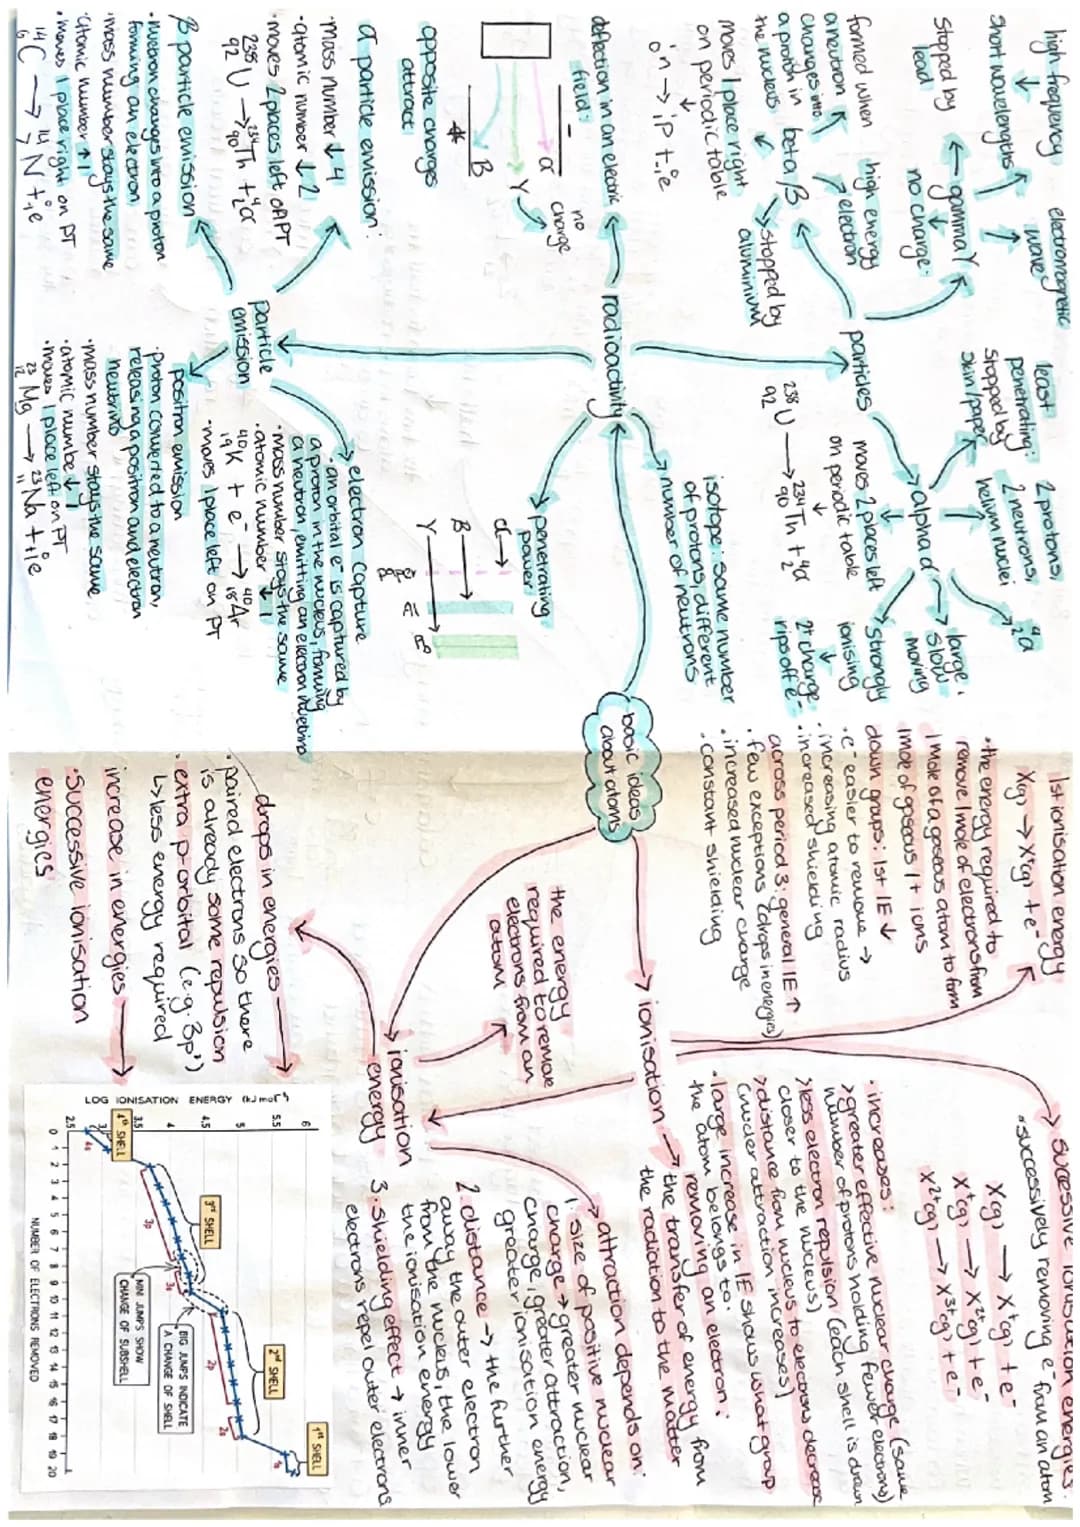 basic ideas
about atoms
radioactivity
particles
gamma γ
high frequency
↓
short wavelengths
electromagnetic
wave
stopped by
lead
no charge
beta/β
formed when
a neutron
changes into
a proton in
the nucleus
high energy
electron
stopped by
aluminium
moves 1 place right
on periodic table
↓
¹₀n → ¹₁P + ₋₁⁰e
alpha α
least
penetrating:
stopped by
skin/paper
2 protons,
2 neutrons,
helium nuclei
⁴₂α
large,
slow
moving
strongly
ionising
↓
2⁺ charge
rips off e⁻
moves 2 places left
on periodic table
↓
²³⁸₉₂U → ²³⁴₉₀Th + ⁴₂α
number of neutrons
isotope: same number
of protons, different
penetrating
power
α
β
γ
paper
Al
Pb
deflection in an electric
field:
-
α
γ
β
+
no
charge
opposite charges
attract
particle
emission
α particle emission:
mass number ↓ 4
·atomic number ↓ 2
·moves 2 places left of PT
²³⁸₉₂U → ²³⁴₉₀Th + ⁴₂α
β particle emission
·neutron changes into a proton
forming an electron
·mass number stays the same
·atomic number ↑ 1
·moves 1 place right on PT
¹⁴₆C → ¹⁴₇N + ₋₁⁰e
electron capture
·an orbital e⁻ is captured by
a proton in the nucleus, forming
a neutron emitting an electron neutrino
·mass number stays the same
·atomic number ↓ 1
⁴⁰₁₉K + e⁻ → ⁴⁰₁₈Ar
·moves 1 place left on PT
positron emission
·proton converted to a neutron,
releasing a positron and electron
neutrino
·mass number stays the same
·atomic number ↓ 1
·moves 1 place left on PT
²³₁₂Mg → ²³₁₁Na + ₊₁⁰e
ionisation
1st ionisation energy
X(g) → X⁺(g) + e⁻
·the energy required to
remove 1 mole of electrons from
1 mole of a gaseous atom to form
1 mole of gaseous 1+ ions
down groups: 1st IE ↓
·e⁻ easier to remove →
·increasing atomic radius
·increased shielding
across period 3: general IE ↑
·few exceptions (drops in energies)
·increased nuclear charge
·constant shielding
successive ionisation energies:
·successively removing e⁻ from an atom
X(g) → X⁺(g) + e⁻
X⁺(g) → X²⁺(g) + e⁻
X²⁺(g) → X³⁺(g) + e⁻
·increases:
>greater effective nuclear charge (same
number of protons holding fewer electrons)
>less electron repulsion (each shell is drawn
closer to the nucleus)
>distance from nucleus to electrons decrease
(nuclear attraction increases)
·large increase in IE shows what group
the atom belongs to:
→ the transfer of energy from
the radiation to the matter
removing an electron
ionisation
energy
the energy
required to remove
electrons from an
atom
attraction depends on:
1. size of positive nuclear
charge → greater nuclear
charge, greater attraction,
greater ionisation energy
2. distance → the further
away the outer electron
from the nucleus, the lower
the ionisation energy
3. shielding effect → inner
electrons repel outer electrons
drops in energies
·paired electrons so there
is already some repulsion
·extra p-orbital (e.g. 3p¹)
↳less energy required
increase in energies
·Successive ionisation
energies
LOG IONISATION ENERGY (kJ mol⁻¹)
6
5.5
5
4.5
4
3.5
3
2.5
0 1 2 3 4 5 6 7 8 9 10 11 12 13 14 15 16 17 18 19 20
NUMBER OF ELECTRONS REMOVED
4th SHELL
3rd SHELL
2nd SHELL
1st SHELL
4s
3p
3s
2p
2s
1s
MINI JUMPS SHOW
CHANGE OF SUBSHELL
BIG JUMPS INDICATE
A CHANGE OF SHELL